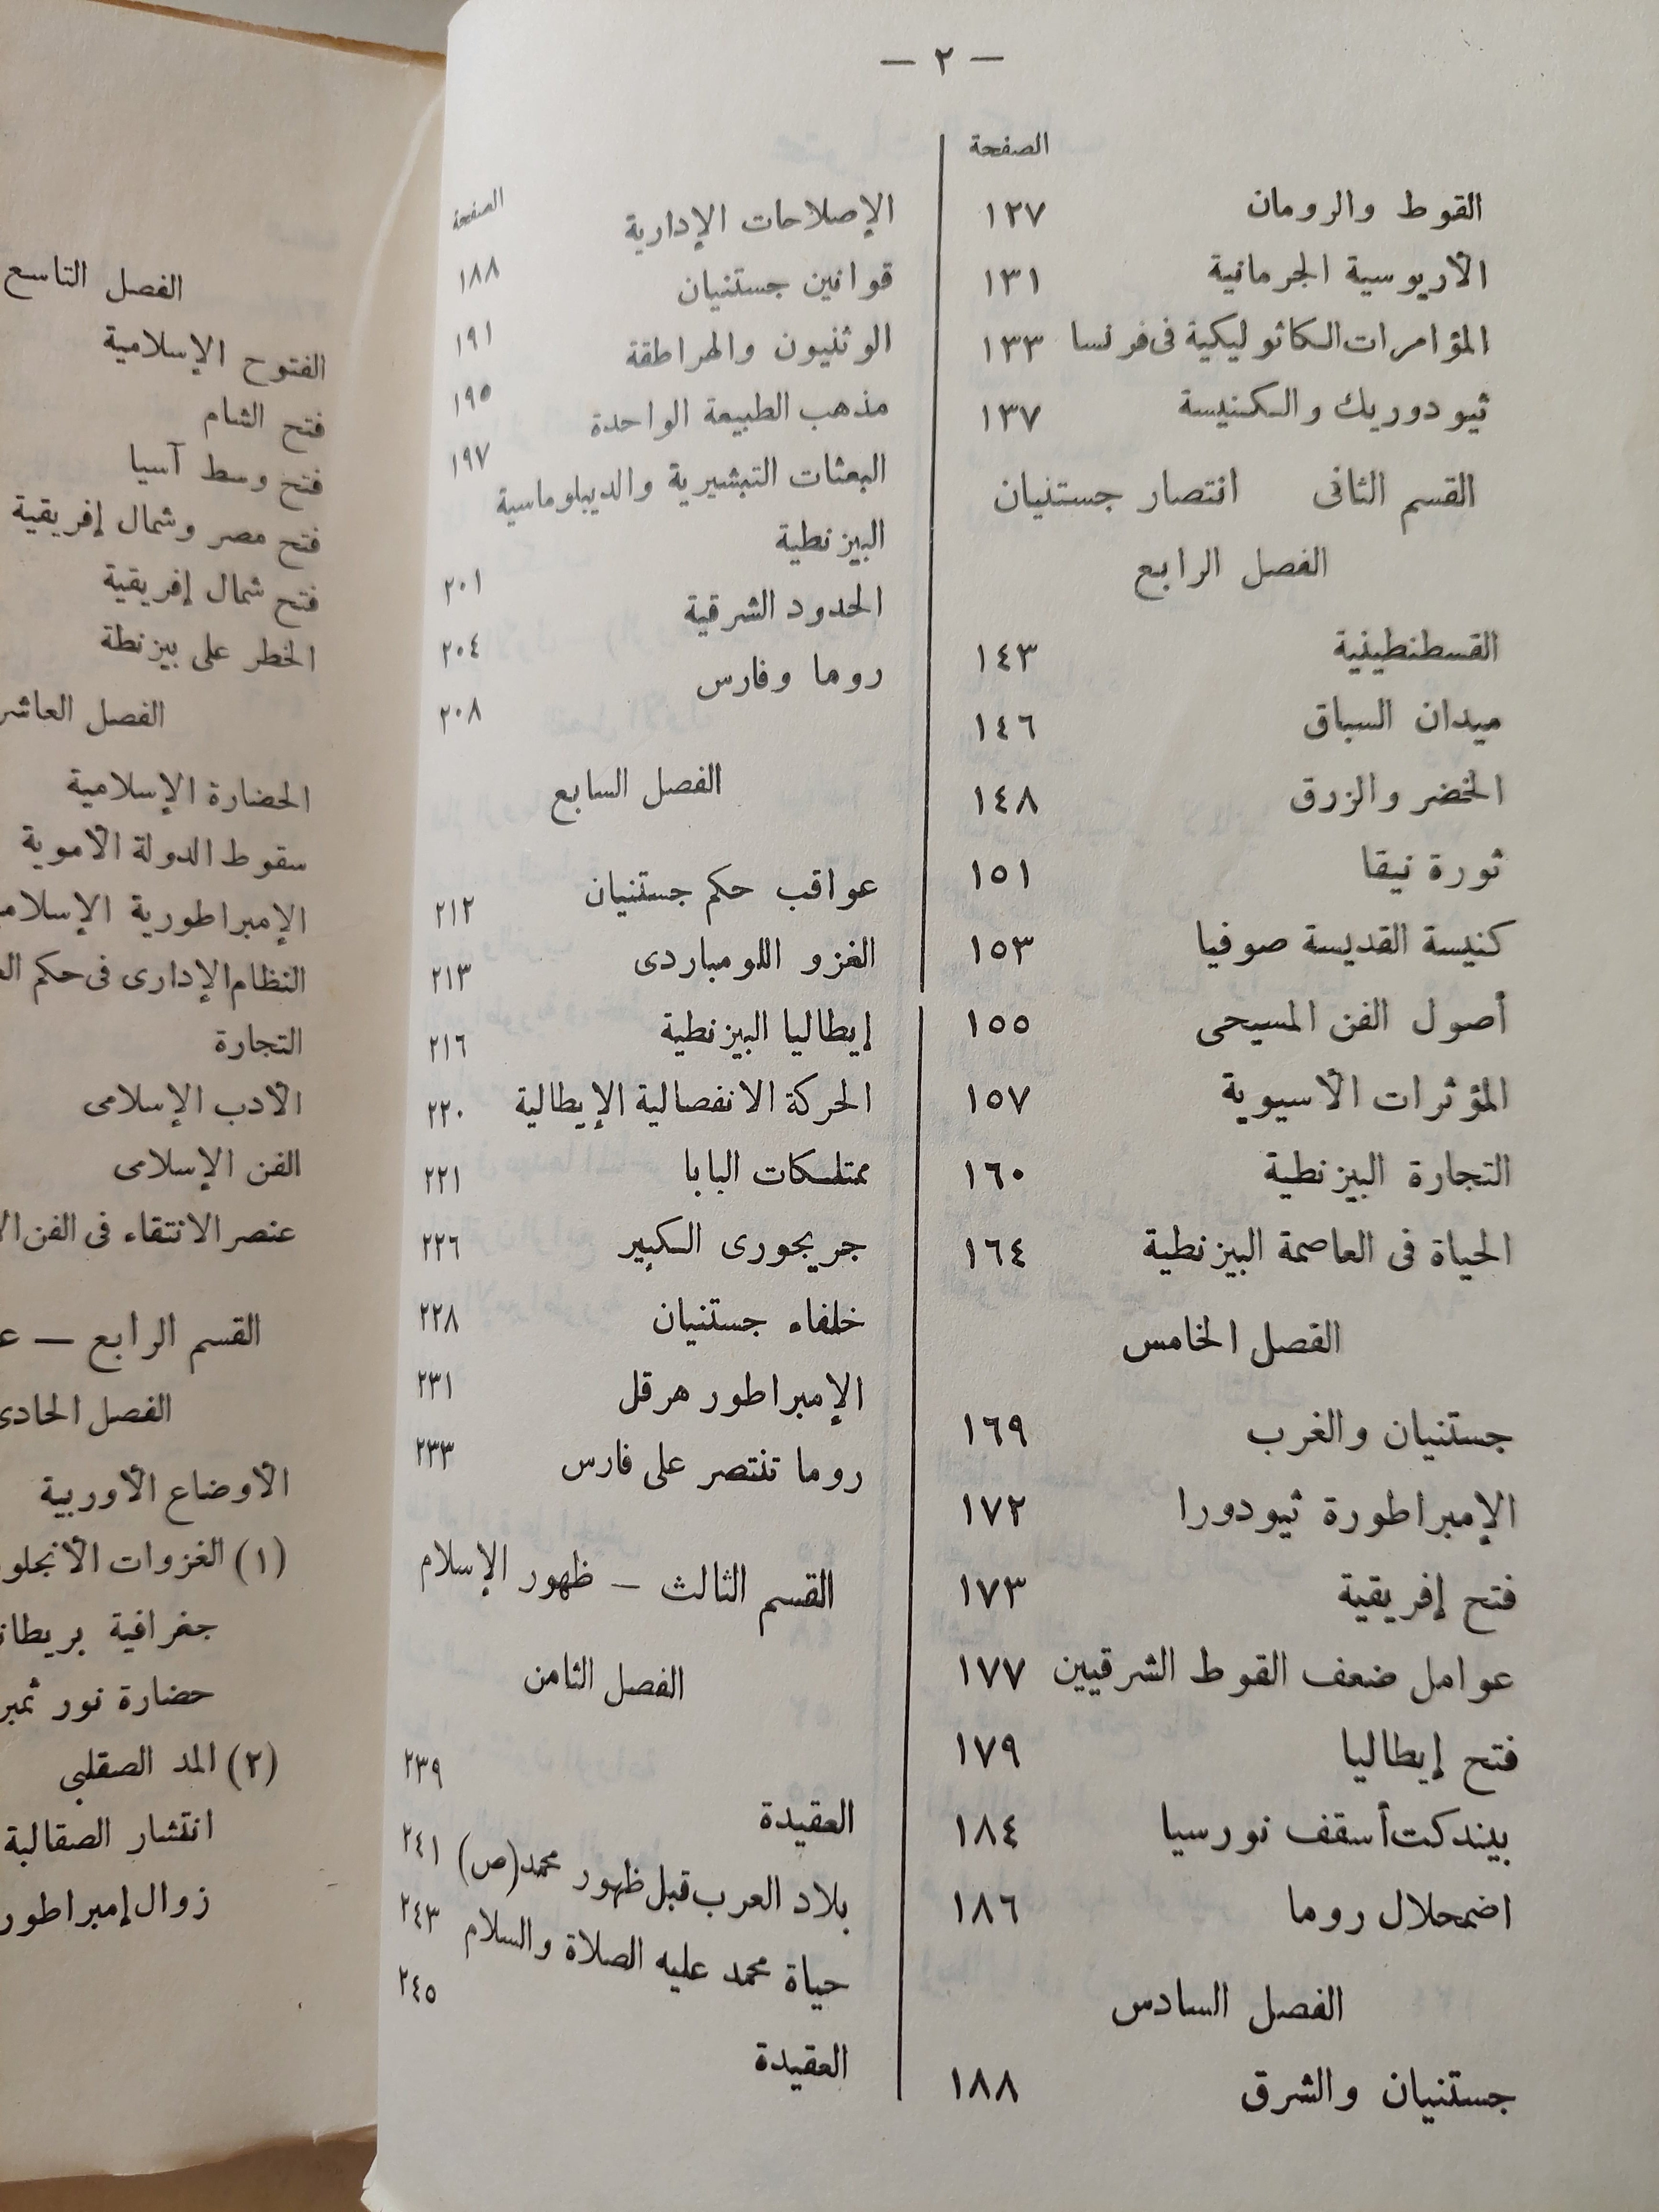 — ٢ —
الصفحة
القوط والرومان ١٢٧
الأريوسية الجرمانية ١٣١
المؤامرات الكاثوليكية فى فرنسا ١٣٣
ثيودوريك والكنيسة ١٣٧
القسم الثانى انتصار جستنيان
الفصل الرابع
القسطنطينية ١٤٣
ميدان السباق ١٤٦
الخضر والزرق ١٤٨
ثورة نيقا ١٥١
كنيسة القديسة صوفيا ١٥٣
أصول الفن المسيحى ١٥٥
المؤثرات الأسيوية ١٥٧
التجارة البيزنطية ١٦٠
الحياة فى العاصمة البيزنطية ١٦٤
الفصل الخامس
جستنيان والغرب ١٦٩
الإمبراطورة ثيودورا ١٧٢
فتح إفريقية ١٧٣
عوامل ضعف القوط الشرقيين ١٧٧
فتح إيطاليا ١٧٩
بيندكت أسقف نورسيا ١٨٤
اضمحلال روما ١٨٦
الفصل السادس
جستنيان والشرق ١٨٨
الصفحة
الإصلاحات الإدارية ١٨٨
قوانين جستنيان ١٩١
الوثنيون والهراطقة ١٩٥
مذهب الطبيعة الواحدة ١٩٧
البعثات التبشيرية والديبلوماسية
البيزنطية ٢٠١
الحدود الشرقية ٢٠٤
روما وفارس ٢٠٨
الفصل السابع
عواقب حكم جستنيان ٢١٢
الغزو اللومباردى ٢١٣
إيطاليا البيزنطية ٢١٦
الحركة الانفصالية الإيطالية ٢٢٠
ممتلكات البابا ٢٢١
جريجورى الكبير ٢٢٦
خلفاء جستنيان ٢٢٨
الإمبراطور هرقل ٢٣١
روما تنتصر على فارس ٢٣٣
القسم الثالث — ظهور الإسلام
الفصل الثامن
العقيدة ٢٣٩
بلاد العرب قبل ظهور محمد (ص) ٢٤١
حياة محمد عليه الصلاة والسلام ٢٤٣
العقيدة ٢٤٥
الفصل التاسع
الفتوح الإسلامية
فتح الشام
فتح وسط آسيا
فتح مصر وشمال إفريقية
فتح شمال إفريقية
الخطر على بيزنطة
الفصل العاشر
الحضارة الإسلامية
سقوط الدولة الأموية
الإمبراطورية
النظام الإدارى فى حكم
التجارة
الأدب الإسلامى
الفن الإسلامى
عنصر الانتقاء فى الفن
القسم الرابع —
الفصل
الأوضاع الأوربية
(١) الغزوات
جغرافية
حضارة
(٢) المد الصقلبي
انتشار الصقالبة
زوال